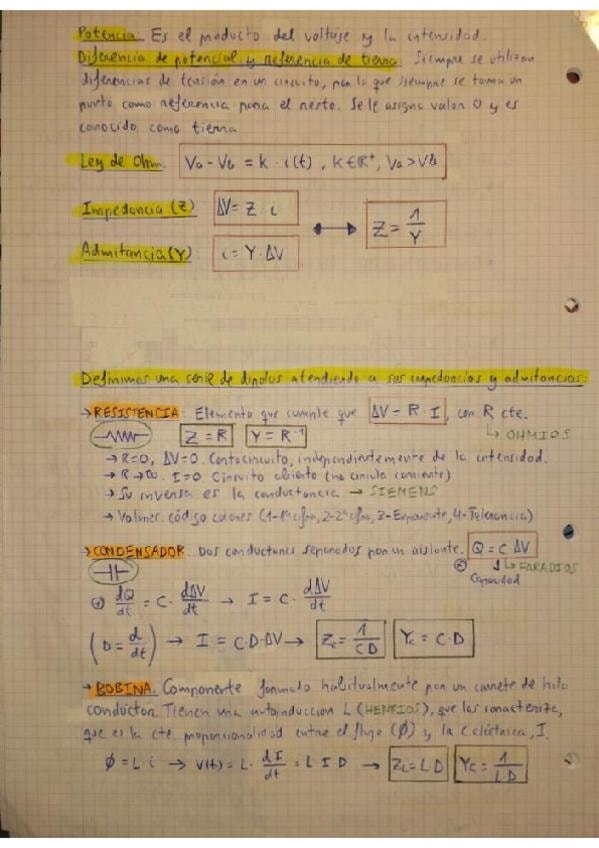 Potencia. Es el producto del voltaje y la intensidad.
Diferencia de potencial y referencia de tierra. Siempre se utilizan
diferencias de tensión en un circuito, por lo que siempre se toma un
punto como referencia para el resto. Se le asigna valor 0 y es
conocido como tierra
Ley de Ohm. Va - Vb = k · i(t), k ∈ ℝ⁺, Va > Vb
Impedancia (Z) ΔV = Z · i
Z = 1/Y
Admitancia (Y) i = Y · ΔV
Definimos una serie de dipolos atendiendo a sus impedancias y admitancias:
→ RESISTENCIA: Elemento que cumple que ΔV = R · I, con R cte.
Z = R Y = R⁻¹ ↳ OHMIOS
→ R=0, ΔV=0. Cortocircuito, independientemente de la intensidad.
→ R→∞. I=0 Circuito abierto (no circula corriente)
→ Su inversa es la conductancia → SIEMENS
→ Valores: código colores (1-1ª cifra, 2-2ª cifra, 3-Exponente, 4-Tolerancia)
→ CONDENSADOR. Dos conductores separados por un aislante. Q = C · ΔV
↳ FARADIOS
Capacidad
dQ/dt = C · dΔV/dt → I = C · dΔV/dt
(D = d/dt) → I = C·D·ΔV → Zc = 1/CD Yc = C·D
→ BOBINA. Componente formado habitualmente por un carrete de hilo
conductor. Tienen una autoinduccion L (HENRIOS), que las caracteriza,
que es la cte. proporcionalidad entre el flujo (φ) y la c. eléctrica, I.
φ = L · i → V(t) = L · dI/dt = L I D → ZL = L D Yc = 1/L·D